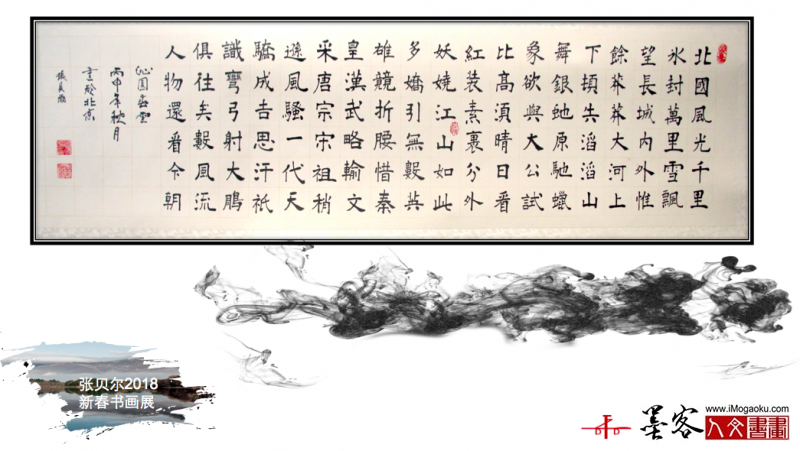 北國風光千里
氷封萬里雪飄
望長城内外惟
餘莽莽大河上
下頓失滔滔山
舞銀虵原馳蠟
象欲與大公試
比高湏晴日看
紅装素裹分外
妖嬈江山如此
多嬌引無數英
雄競折腰惜秦
皇漢武略輸文
采唐宗宋祖稍
遜風騷一代天
驕成吉思汗祇
識彎弓射大鵰
俱往矣數風流
人物還看今朝
沁園春雪
丙申年秋月
書於北京
張貝爾
张贝尔2018
新春书画展
墨客
www.iMogaoku.com
人文書畫